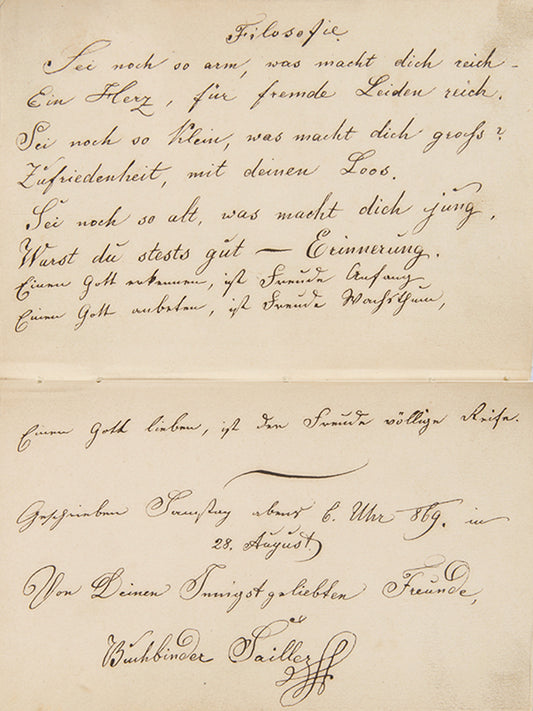 Filosofie.
Sei noch so arm, was macht dich reich –
Ein Herz, für fremde Leiden reich.
Sei noch so klein, was macht dich groß?
Zufriedenheit, mit deinen Loos.
Sei noch so alt, was macht dich jung,
Warst du stests gut — Erinnerung.
Einen Gott erkennen, ist Freude Anfang
Einen Gott anbeten, ist Freude Wachsthum,
Einen Gott lieben, ist der Freude völlige Reife.
Geschrieben Samstag abend 6. Uhr 869. in
28. August
Von Deinen Innigst geliebten Freunde,
Buchbinder Sailler